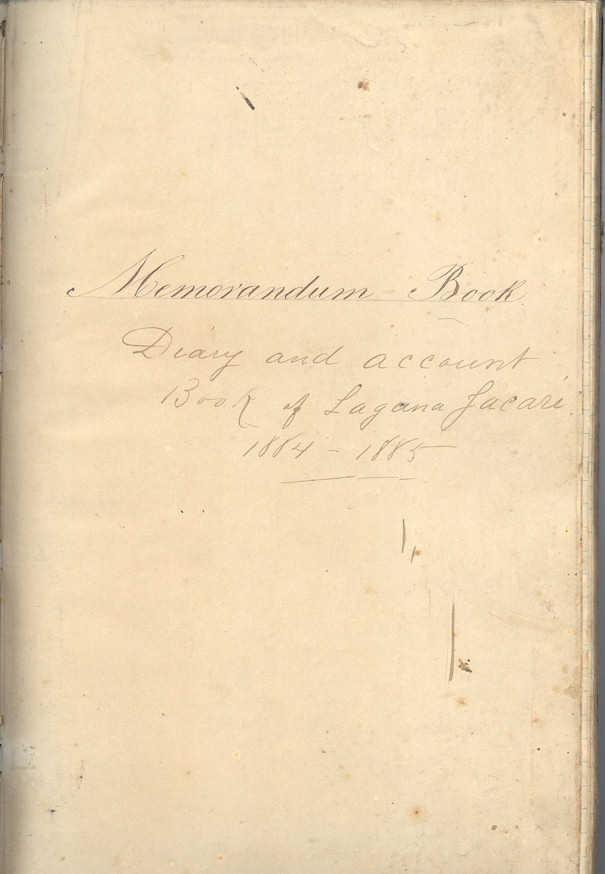 Memorandum - Book
Diary and account
Book of Lagana Jacaré.
1884 - 1885